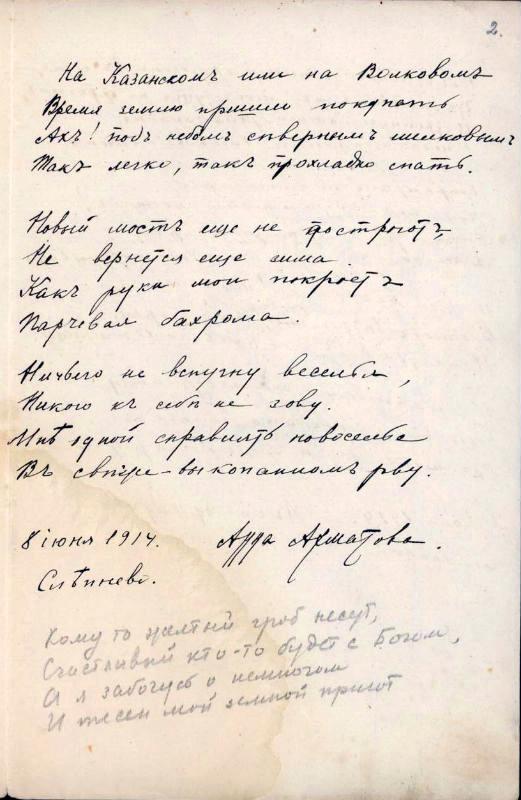 2.
На Казанскомъ или на Волковомъ
Время землю пришло покупать
Ахъ! подъ небомъ сѣвернымъ шелковымъ
Такъ легко, такъ прохладно спать.
Новый мостъ еще не достроютъ,
Не вернется еще зима
Какъ руки мои покроетъ
Парчевая бахрома.
Ничьего не вспугну веселья,
Никого къ себѣ не зову.
Мнѣ одной справлять новоселье
Въ свѣже-выкопанномъ рву.
8 iюня 1914. Анна Ахматова.
Слѣпнево.
Кому то желтый гроб несут,
Счастливый кто-то будет с Богом,
А я забочусь о немногом
И тесен мой земной приют